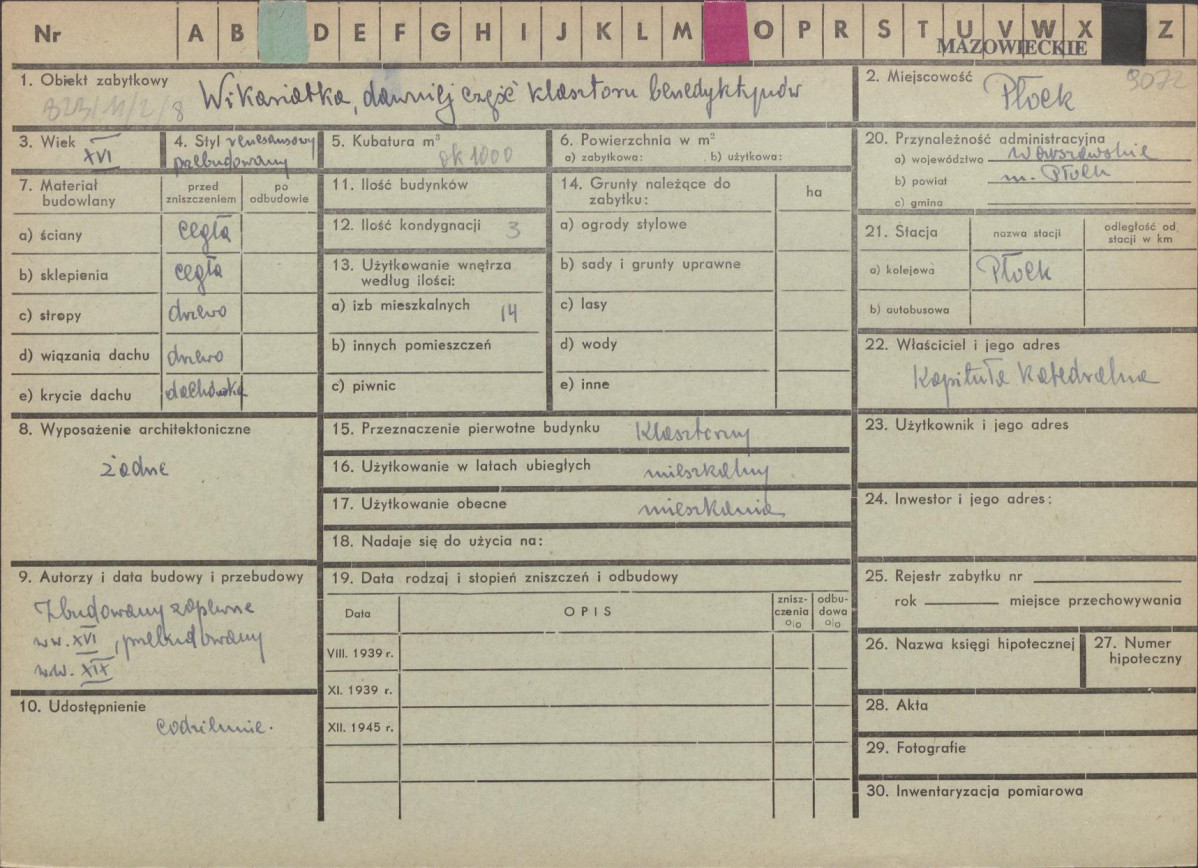 Nr A B D E F G H I J K L M O P R S T U V W X Z
MAZOWIECKIE
1. Obiekt zabytkowy
Wikariatka, dawniej część klasztoru benedyktynów
2. Miejscowość
Płock
3072
3. Wiek XVI
4. Styl renesansowy
przebudowany
5. Kubatura m³
ok 1000
6. Powierzchnia w m²
a) zabytkowa: b) użytkowa:
20. Przynależność administracyjna
a) województwo warszawskie
b) powiat m. Płock
c) gmina
7. Materiał budowlany
przed zniszczeniem
po odbudowie
a) ściany cegła
b) sklepienia cegła
c) stropy drzewo
d) wiązania dachu drzewo
e) krycie dachu dachówka
11. Ilość budynków
12. Ilość kondygnacji 3
13. Użytkowanie wnętrza według ilości:
a) izb mieszkalnych 14
b) innych pomieszczeń
c) piwnic
14. Grunty należące do zabytku:
ha
a) ogrody stylowe
b) sady i grunty uprawne
c) lasy
d) wody
e) inne
21. Stacja
nazwa stacji
odległość od stacji w km
a) kolejowa Płock
b) autobusowa
22. Właściciel i jego adres
Kapituła Katedralna
8. Wyposażenie architektoniczne
żadne
15. Przeznaczenie pierwotne budynku klasztorny
16. Użytkowanie w latach ubiegłych mieszkalny
17. Użytkowanie obecne mieszkania
18. Nadaje się do użycia na:
23. Użytkownik i jego adres
24. Inwestor i jego adres:
9. Autorzy i data budowy i przebudowy
Zbudowany zapewne
w w. XVI, przebudowany
w w. XIX
10. Udostępnienie
codziennie.
19. Data rodzaj i stopień zniszczeń i odbudowy
Data
OPIS
znisz-czenia %
odbu-dowa %
VIII. 1939 r.
XI. 1939 r.
XII. 1945 r.
25. Rejestr zabytku nr
rok miejsce przechowywania
26. Nazwa księgi hipotecznej
27. Numer hipoteczny
28. Akta
29. Fotografie
30. Inwentaryzacja pomiarowa